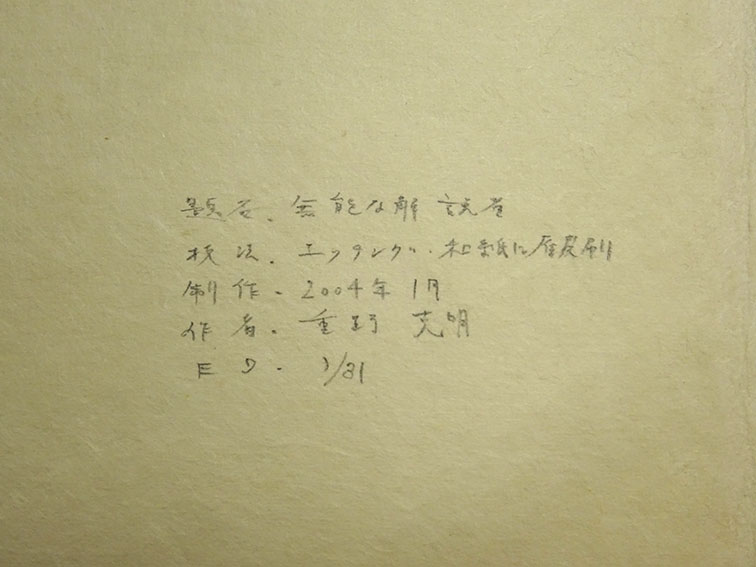 題名. 無能な解説者
技法. エッチング. 和紙に雁皮刷り
制作. 2004年 1月
作者. 重野 克明
ED. 1/31